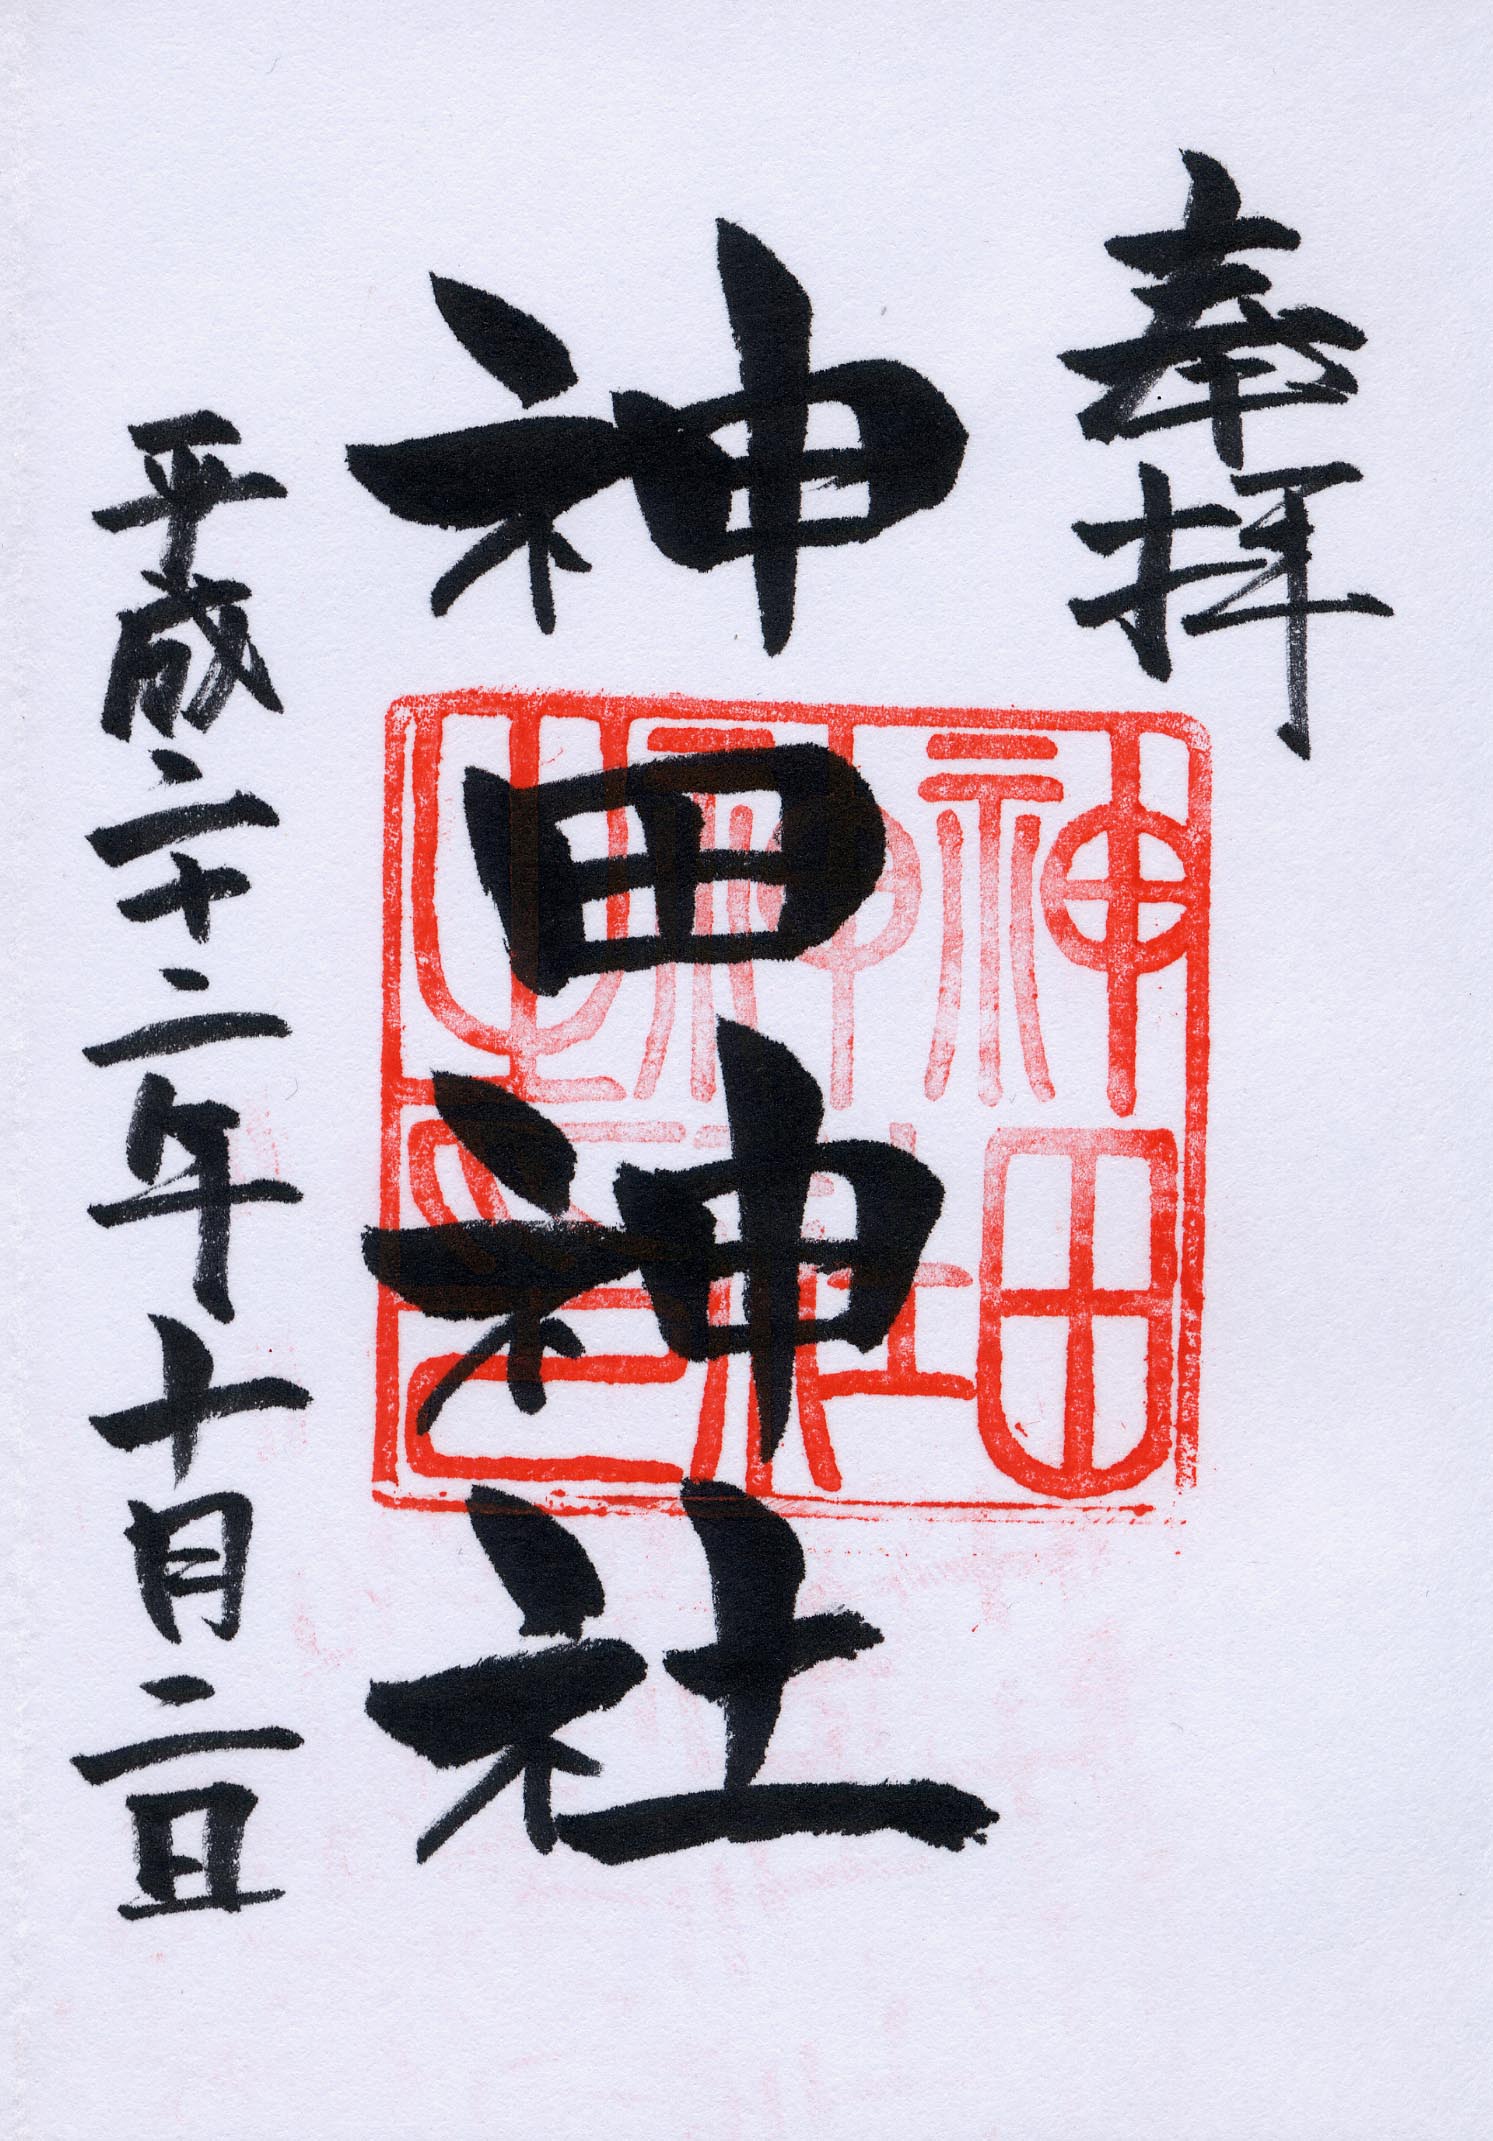 奉拝
神田神社
神田
神社
之印
平成二十二年十月二日